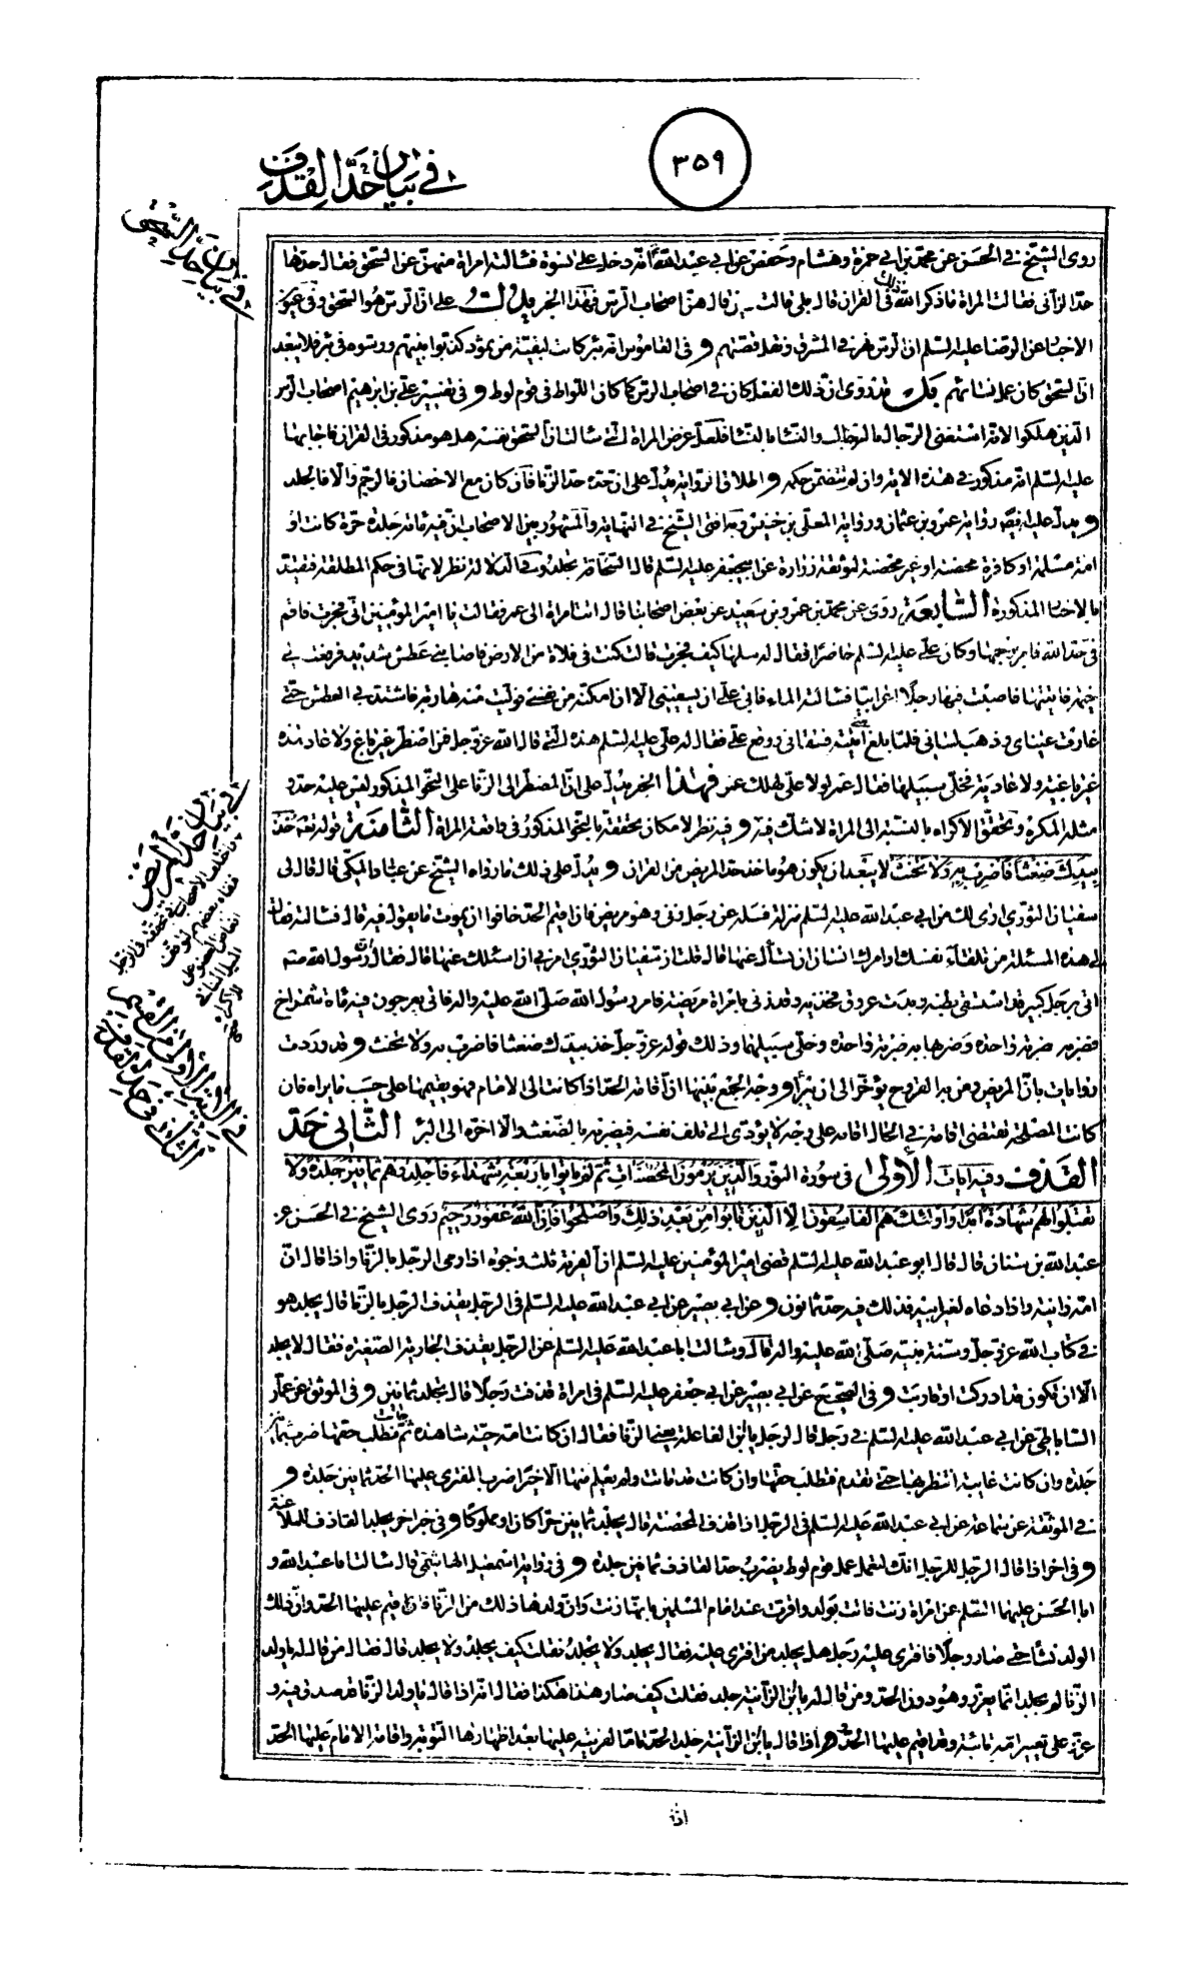 ٣٥٩
في بيان حدّ القذف
في بيان حدّ السّحق
روى الشيخ في الحسن عن محمد بن ابي حمزة وهشام وحفص عن ابي عبد الله انّه دخل عليه نسوة فسألته امراة منهنّ عن السّحق فقال حدّها
حدّ الزاني فقالت المراة ما ذكر الله ذلك في القران قال بلى قالت قال هنّ اصحاب الرّسّ فهذا الخبر يدلّ على انّ الرّس هو السّحق وفي عيون
الاخبار عن الرضا عليه السّلم ان الرّس نهر في المشرق ونقل قصّتهم و في القاموس انّه بئر كانت لبقيّة من ثمود كذّبوا نبيّهم ورسّوه في بئر فلا يبعد
انّ السّحق كان عمل نسائهم بل قد روى انّ ذلك الفعل كان في اصحاب الرّس كما كان اللّواط في قوم لوط و في تفسير عليّ بن ابرهيم اصحاب الرّس
الّذين هلكوا لانّه استغنى الرّجال بالرّجال والنّساء بالنّساء فلعلّ غرض المراة الّتي سالت انّ السّحق نفسه هل هو مذكور في القران فاجابها
عليه السّلم انّه مذكور في هذه الاية وان لم تتضمّن حكمه و اطلاق الرّواية يدلّ على ان حدّه حدّ الزّنا فان كان مع الاحصان فالرّجم والّا فالجلد
و يدلّ عليه ايضا رواية عمرو بن عثمان ورواية المعلّى بن خنيس وبه افتى الشّيخ في النّهاية والمشهور بين الاصحاب انّ فيه مائة جلدة حرّة كانت او
امة مسلمة او كافرة محصنة او غير محصنة لموثّقة زرارة عن ابي جعفر عليه السّلم قال السّحاقة تجلد وفي الدّلالة نظر لانّها في حكم المطلقة فتقيّد
بالاخبار المذكورة السّابعة روى عن محمد بن عمرو بن سعيد عن بعض اصحابنا قال اتت امراة الى عمر فقالت يا امير المؤمنين انّي فجرت فاقم
فيّ حدّ الله فامر برجمها وكان عليّ عليه السّلم حاضرا فقال له سلها كيف فجرت قالت كنت في فلاة من الارض فاصابني عطش شديد فرفعت لي
خيمة فاتيتها فاصبت فيها رجلا اعرابيّا فسالته الماء فابى عليّ ان يسقيني الّا ان امكنه من نفسي فولّيت منه هاربة فاشتدّ بي العطش حتّى
غارت عيناي وذهب لساني فلمّا بلغ منّي اتيته فسقاني ووقع عليّ فقال له عليّ عليه السّلم هذه الّتي قال الله عزّ وجلّ فمن اضطرّ غير باغ ولا عاد هذه
غير باغية ولا عادية فخلّى سبيلها فقال عمر لولا عليّ لهلك عمر فهذا الخبر يدلّ على انّ المضطرّ الى الزّنا على النّحو المذكور ليس عليه حدّ و
مثله المكره وتحقّق الاكراه بالنّسبة الى المراة لا شكّ فيه و فيه نظر لامكان تحقّقه بالنّحو المذكور في واقعة المراة الثّامنة قوله تعالى خذ
بيدك ضغثا فاضرب به ولا تحنث لا يبعد ان يكون هو ماخذ حدّ المريض من القران و يدلّ على ذلك ما رواه الشّيخ عن عبّاد المكّي قال قال لي
سفيان الثّوري ارى لك من ابي عبد الله عليه السّلم منزلة فسله عن رجل زنى وهو مريض فان اقيم الحدّ خافوا ان يموت ما يقول فيه قال فسالته فقال
لي هذه المسئلة من تلقاء نفسك او امرك انسان ان تسأل عنها قال قلت انّ سفيان الثّوري امرني ان اسئلك عنها قال فقال انّ رسول الله ص
اتي برجل كبير قد استسقى بطنه وبدت عروق فخذيه وقد زنى بامراة مريضة فامر رسول الله صلّى الله عليه واله فاتى بعرجون فيه مائة شمراخ
فضربه ضربة واحدة وضربها به ضربة واحدة وخلّى سبيلهما وذلك قوله عزّ وجلّ خذ بيدك ضغثا فاضرب به ولا تحنث و قد وردت
روايات بانّ المريض ومن به القروح يؤخّر الى ان يبرأ و وجه الجمع بينها انّ اقامة الحدّ اذا كانت الى الامام فهو يقيمها على حسب ما يراه فان
كانت المصلحة تقتضي اقامته في الحال اقامه على وجه لا يؤدّي الى تلف نفسه فيضربه بالضّغث والّا اخّره الى البرء الثّاني حدّ
القذف وفيه ايات الاولى في سورة النّور والّذين يرمون المحصنات ثمّ لم ياتوا باربعة شهداء فاجلدوهم ثمانين جلدة ولا
تقبلوا لهم شهادة ابدا واولئك هم الفاسقون الّا الّذين تابوا من بعد ذلك واصلحوا فانّ الله غفور رحيم روى الشيخ في الحسن عن
عبد الله بن سنان قال قال ابو عبد الله عليه السّلم قضى امير المؤمنين عليه السّلم انّ الفرية ثلث وجوه اذا رمى الرّجل بالزّنا واذا قال انّ
امّه زانية واذا دعاه لغير ابيه فذلك فيه حدّ ثمانون و عن ابي بصير عن ابي عبد الله عليه السّلم في الرّجل يقذف الرّجل بالزّنا قال يجلد هو
في كتاب الله عزّ وجلّ وسنّة نبيّه صلّى الله عليه واله قال وسالت ابا عبد الله عليه السّلم عن الرّجل يقذف الجارية الصّغيرة فقال لا يجلد
الّا ان تكون قد ادركت او قاربت و في الصّحيح عن ابي بصير عن ابي جعفر عليه السّلم في امراة قذفت رجلا قال تجلد ثمانين و في الموثّق عن عمّار
السّاباطي عن ابي عبد الله عليه السّلم في رجل قال لرجل يا بن الفاعلة يعني الزّنا فقال ان كانت امّه حيّة شاهدة ثمّ جاءت تطلب حقّها ضرب ثمانين
جلدة وان كانت غايبة انتظر بها حتّى تقدم فتطلب حقّها وان كانت قد ماتت ولم يعلم منها الّا خيرا ضرب المفتري عليها الحدّ ثمانين جلدة و
في الموثّقة عن سماعة عن ابي عبد الله عليه السّلم في الرّجل اذا قذف المحصنة قال يجلد ثمانين حرّا كان او مملوكا و في خبر اخر يجلد القاذف للملاعنة
و في اخر اذا قال الرّجل للرّجل انّك لتعمل عمل قوم لوط يضرب حدّ القاذف ثمانين جلدة و في رواية اسمعيل الهاشمي قال سالت ابا عبد الله و
ابا الحسن عليهما السّلم عن امراة زنت فاتت بولد واقرّت عند امام المسلمين بانّها زنت وانّ ولدها ذلك من الزّنا فاقيم عليها الحدّ وانّ ذلك
الولد نشا حتّى صار رجلا فافترى عليه رجل هل يجلد من افترى عليه فقال يجلد ولا يجلد فقلت كيف يجلد ولا يجلد قال فقال من قال له يا ولد
الزّنا لم يجلد انّما يعزّر وهو دون الحدّ ومن قال له يا بن الزّانية جلد فقلت كيف صار هذا هكذا فقال انّه اذا قال يا ولد الزّنا فقد صدق فيه و
عزّر على تعييره امّه ثانية وقد اقيم عليها الحدّ و اذا قال يا بن الزّانية جلد الحدّ تامّا لفريته عليها بعد اظهارها التّوبة واقامة الامام عليها الحدّ
اذا
في بيان حدّ المريض
في الاية الاولى من القسم
الثاني في حدّ القذف